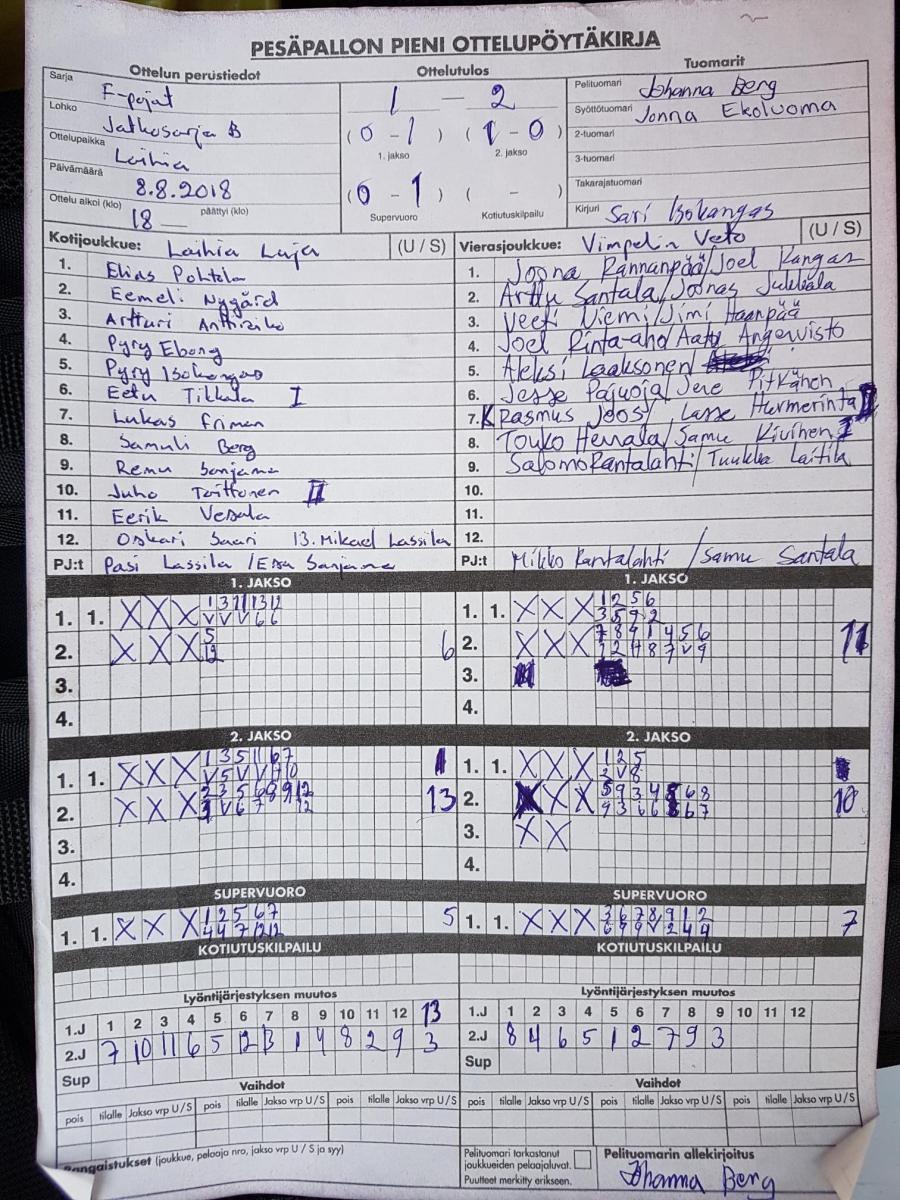 PESÄPALLON PIENI OTTELUPÖYTÄKIRJA
Ottelun perustiedot Ottelutulos Tuomarit
Sarja F-pojat
Lohko Jatkosarja B
Ottelupaikka Laihia
Päivämäärä 8.8.2018
Ottelu alkoi (klo) 18 — päättyi (klo)
1 — 2
(0 - 1) (1 - 0)
1. jakso 2. jakso
(0 - 1) ( - )
Supervuoro Kotiutuskilpailu
Pelituomari Johanna Berg
Syöttötuomari Jonna Ekoluoma
2-tuomari
3-tuomari
Takarajatuomari
Kirjuri Sari Isokangas
Kotijoukkue: Laihia Luja (U / S)
1. Elias Pohtola
2. Eemeli Nygård
3. Artturi
4. Pyry Ebong
5. Pyry Isokangas
6. Eetu Tikkala I
7. Lukas Friman
8. Samuli Berg
9. Remu Sanjama
10. Juho Toittonen II
11. Eerik Vesala
12. Oskari Saari 13. Mikael Lassila
PJ:t Pasi Lassila / Esa Sanjama
Vierasjoukkue: Vimpelin Veto (U / S)
1. Joona Rannanpää/Joel Kangas
2. Arttu Santala/Joonas Jukkala
3. Veeti Niemi/Jimi Haanpää
4. Joel Rinta-aho/Aatu Angervisto
5. Aleksi Laaksonen
6. Jesse Pajuoja/Jere Pitkänen
7. K Rasmus Joos/ Lasse Hurmerinta II
8. Touko Herrala/Samu Kivinen I
9. Salomo Rantalahti/Tuukka Laitila
10.
11.
12.
PJ:t Mikko Rantalahti /Samu Santala
1. JAKSO 1. JAKSO
1. 1. X X X 1 3 7 11 13 12
V V V 6 6
2. X X X 5 6
12
3.
4.
1. 1. X X X 1 2 5 6
3 5 9 2
2. X X X 7 8 9 1 4 5 6 11
1 2 4 8 7 V 9
3.
4.
2. JAKSO 2. JAKSO
1. 1. X X X 1 3 5 11 6 7
V 5 V V
2. X X X 2 3 5 6 8 9 12 13
V 6 7 12
3.
4.
1. 1. X X X 1 2 5
3 V 8
2. X X 5 9 3 4 6 8 10
9 3 6 6 6 7
3. X X
4.
SUPERVUORO SUPERVUORO
1. 1. X X X 1 2 5 6 7 5
4 4 7 12 12
1. 1. X X X 3 6 7 8 9 1 2 7
6 9 V 2 4 4
KOTIUTUSKILPAILU KOTIUTUSKILPAILU
Lyöntijärjestyksen muutos Lyöntijärjestyksen muutos
1.J 1 2 3 4 5 6 7 8 9 10 11 12 13
2.J 7 10 11 6 5 12 13 1 4 8 2 9 3
Sup
1.J 1 2 3 4 5 6 7 8 9 10 11 12
2.J 8 4 6 5 1 2 7 9 3
Sup
Vaihdot Vaihdot
pois tilalle Jakso vrp U / S pois tilalle Jakso vrp U / S pois tilalle Jakso vrp U / S
pois tilalle Jakso vrp U / S pois tilalle Jakso vrp U / S pois tilalle Jakso vrp U / S
Rangaistukset (joukkue, pelaaja nro, jakso vrp U / S ja syy)
Pelituomari tarkastanut
joukkueiden pelaajaluvat.
Puutteet merkitty erikseen.
Pelituomarin allekirjoitus
Johanna Berg